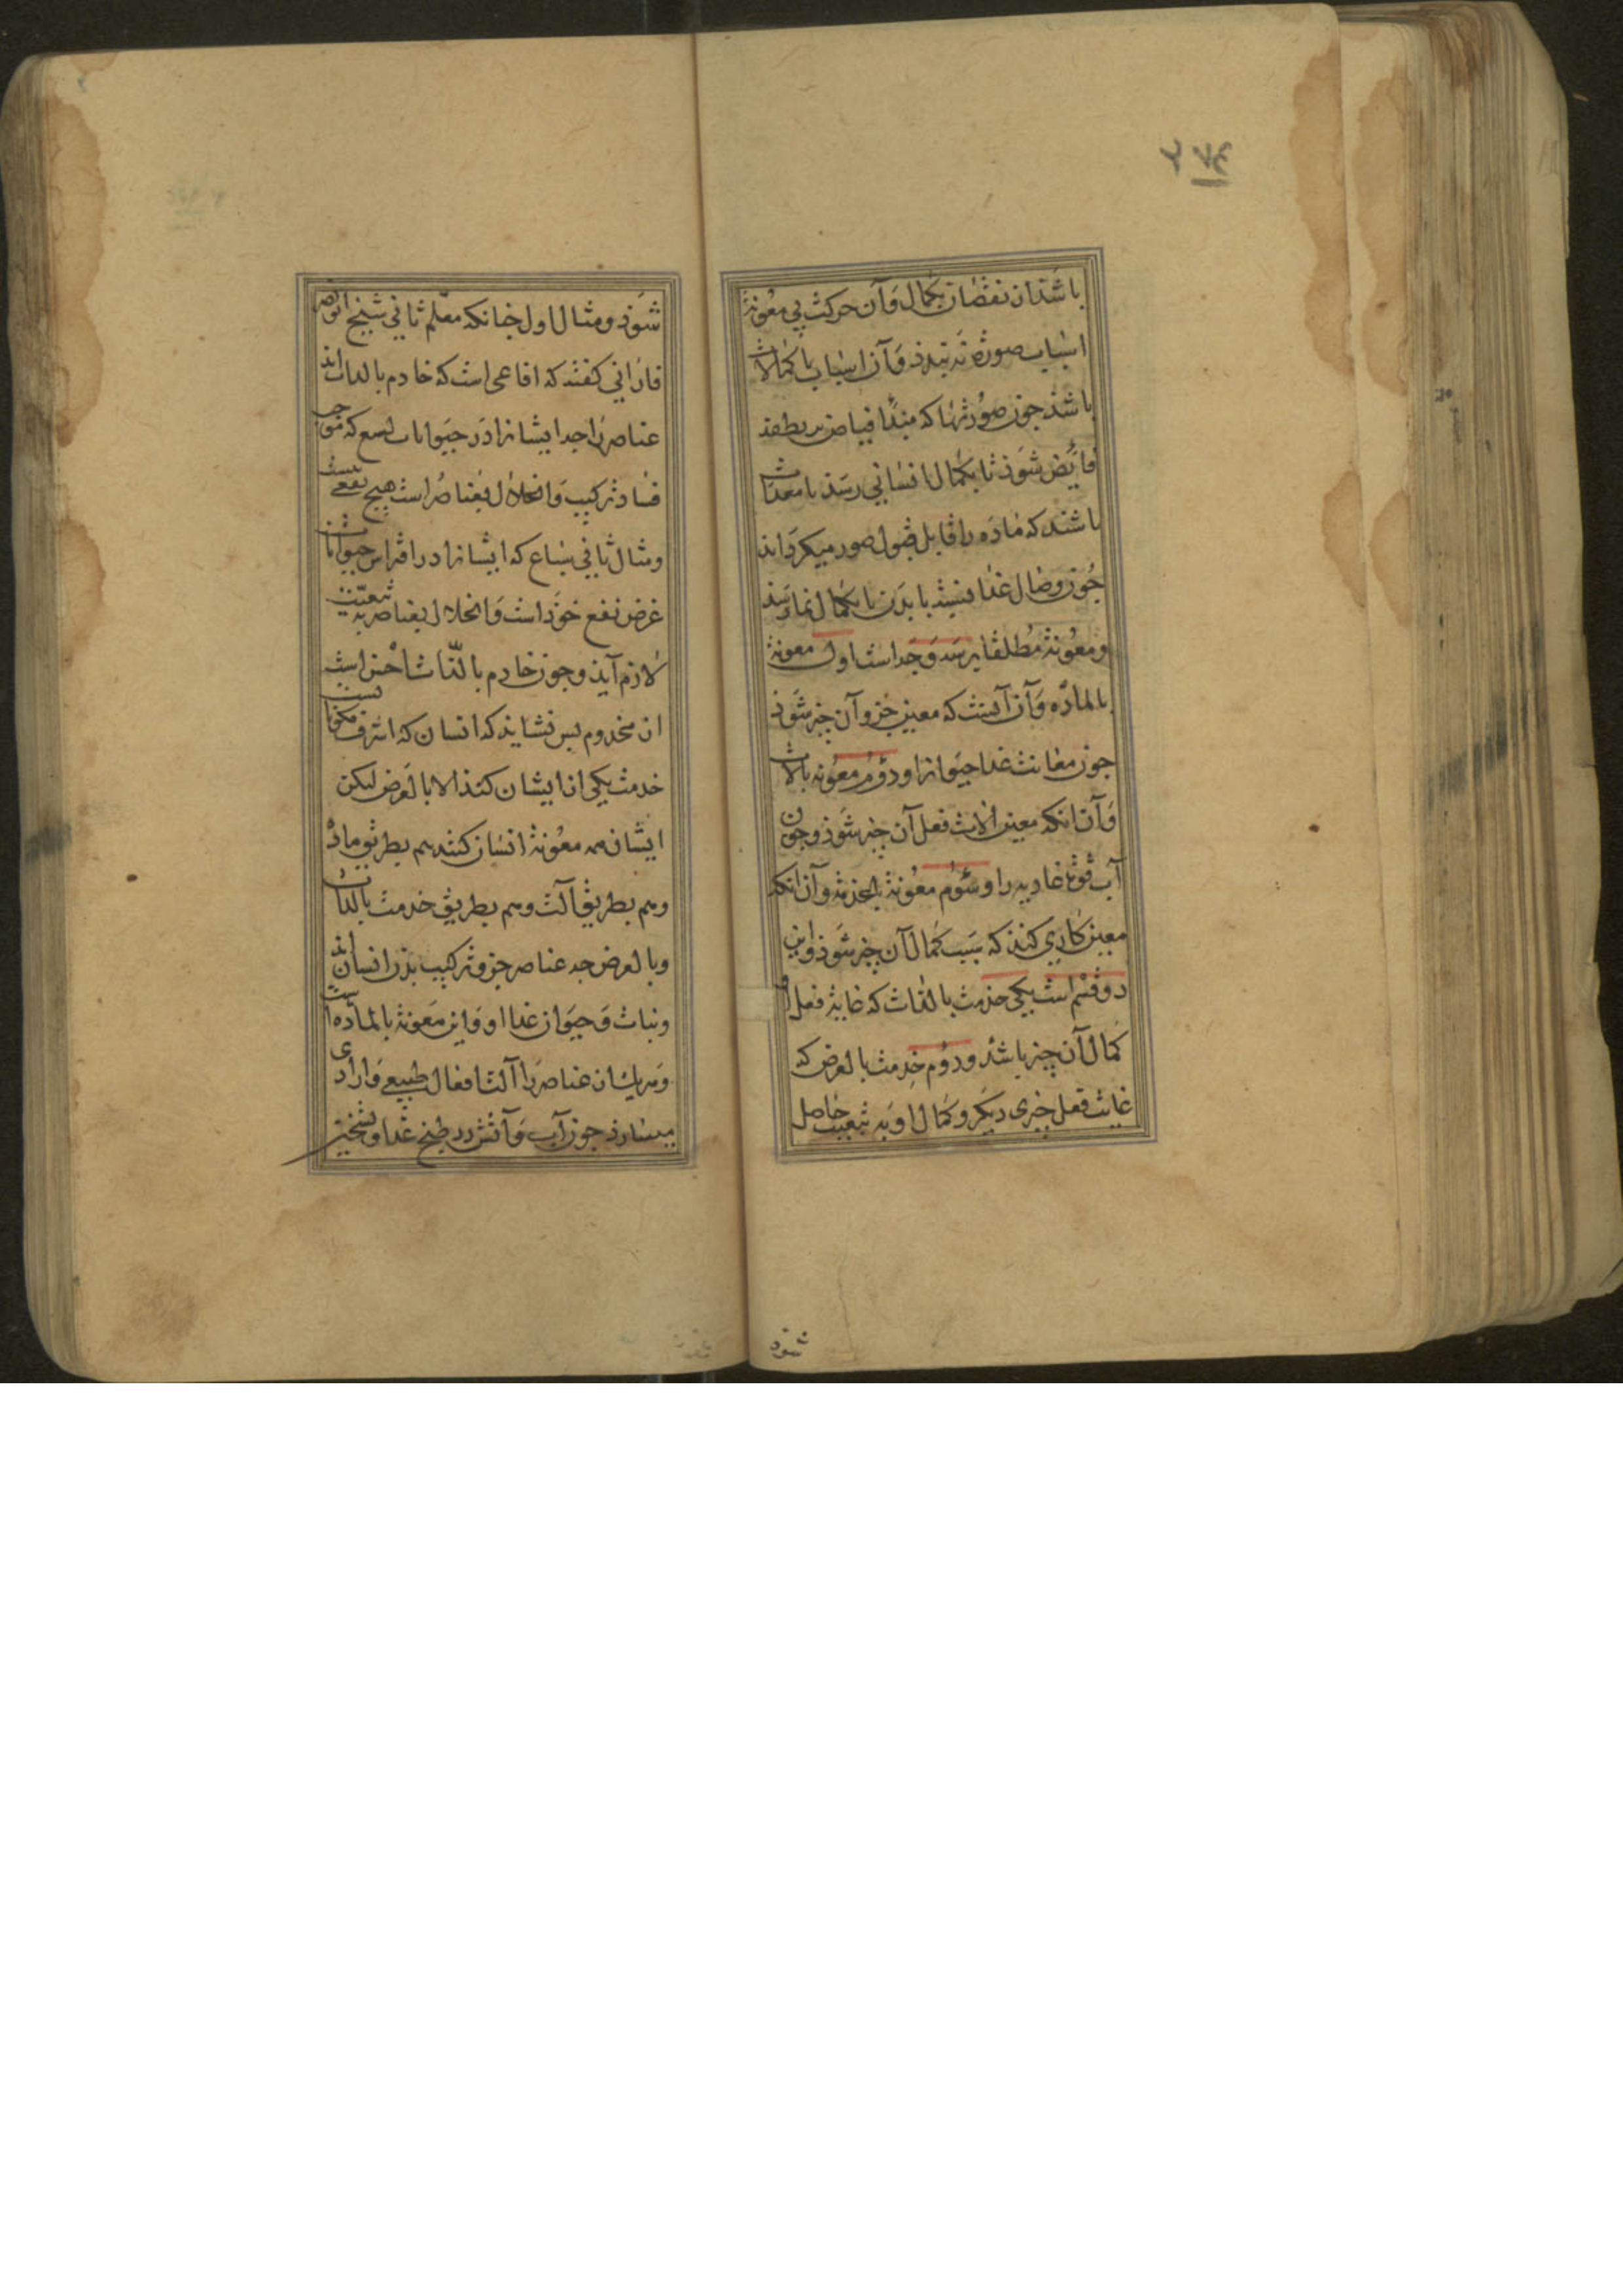 باشد از نقصان بکمال و آن حرکت بی معونة
اسباب صورة نه بندد و آن اسباب یا کمالات
باشد جون صورتها که مبدأ فیاض بر نطفه
فایض شود تا بکمال انسانی رسد یا معدات
باشند که ماده را قابل قبول صور میکرداند
جون وصال غذا ببدن تا بکمال نما رسد
و معونة مطلقا بر سه وجه است اول معونة
بالماده و آن آنست که معین جزو آن چیز شود
جون معاونت غذا حیوانرا و دوم معونه بالالت
و آن انکه معین الات فعل آن چیز شود وجون
آب قوة غاذیه را و سوم معونة بالخدمة و آن انکه
معین کاری کند که سبب کمال آن چیز شود و این
دو قسم است یکی خدمت بالذات که غایة فعل او
کمال آن چیز باشد و دوم خدمت بالعرض که
غایت فعل چیزی دیکر و کمال او به تبعیت حاصل
شود
شود و مثال اول جنانکه معلم ثانی شیخ ابو نصر
فارابی کفته که افاعی است که خادم بالذات اند
عناصر را جه ایشانرا در حیوانات لسع که موجب
فساد ترکیب و انحلال بعناصر است هیچ نفعی نیست
و مثال ثانی سباع که ایشانرا در افتراس حیوانات
غرض نفع خود است و انحلال بعناصر به تبعیت
لازم آید و جون خادم بالذات اخس است
از مخدوم بس نشاید که انسان که اشرف مکونات است
خدمت یکی از ایشان کند الا بالعرض لیکن
ایشان همه معونة انسان کنند هم بطریق ماده
و هم بطریق آلت و هم بطریق خدمت بالذات
و بالعرض جه عناصر جزو ترکیب بدن انسان اند
و نبات و حیوان غذا او و این معونة بالماده است
و هر یک از عناصر را آلت افعال طبیعی و ارادی
میسازد جون آب و آتش در طبخ غذا و تسخین